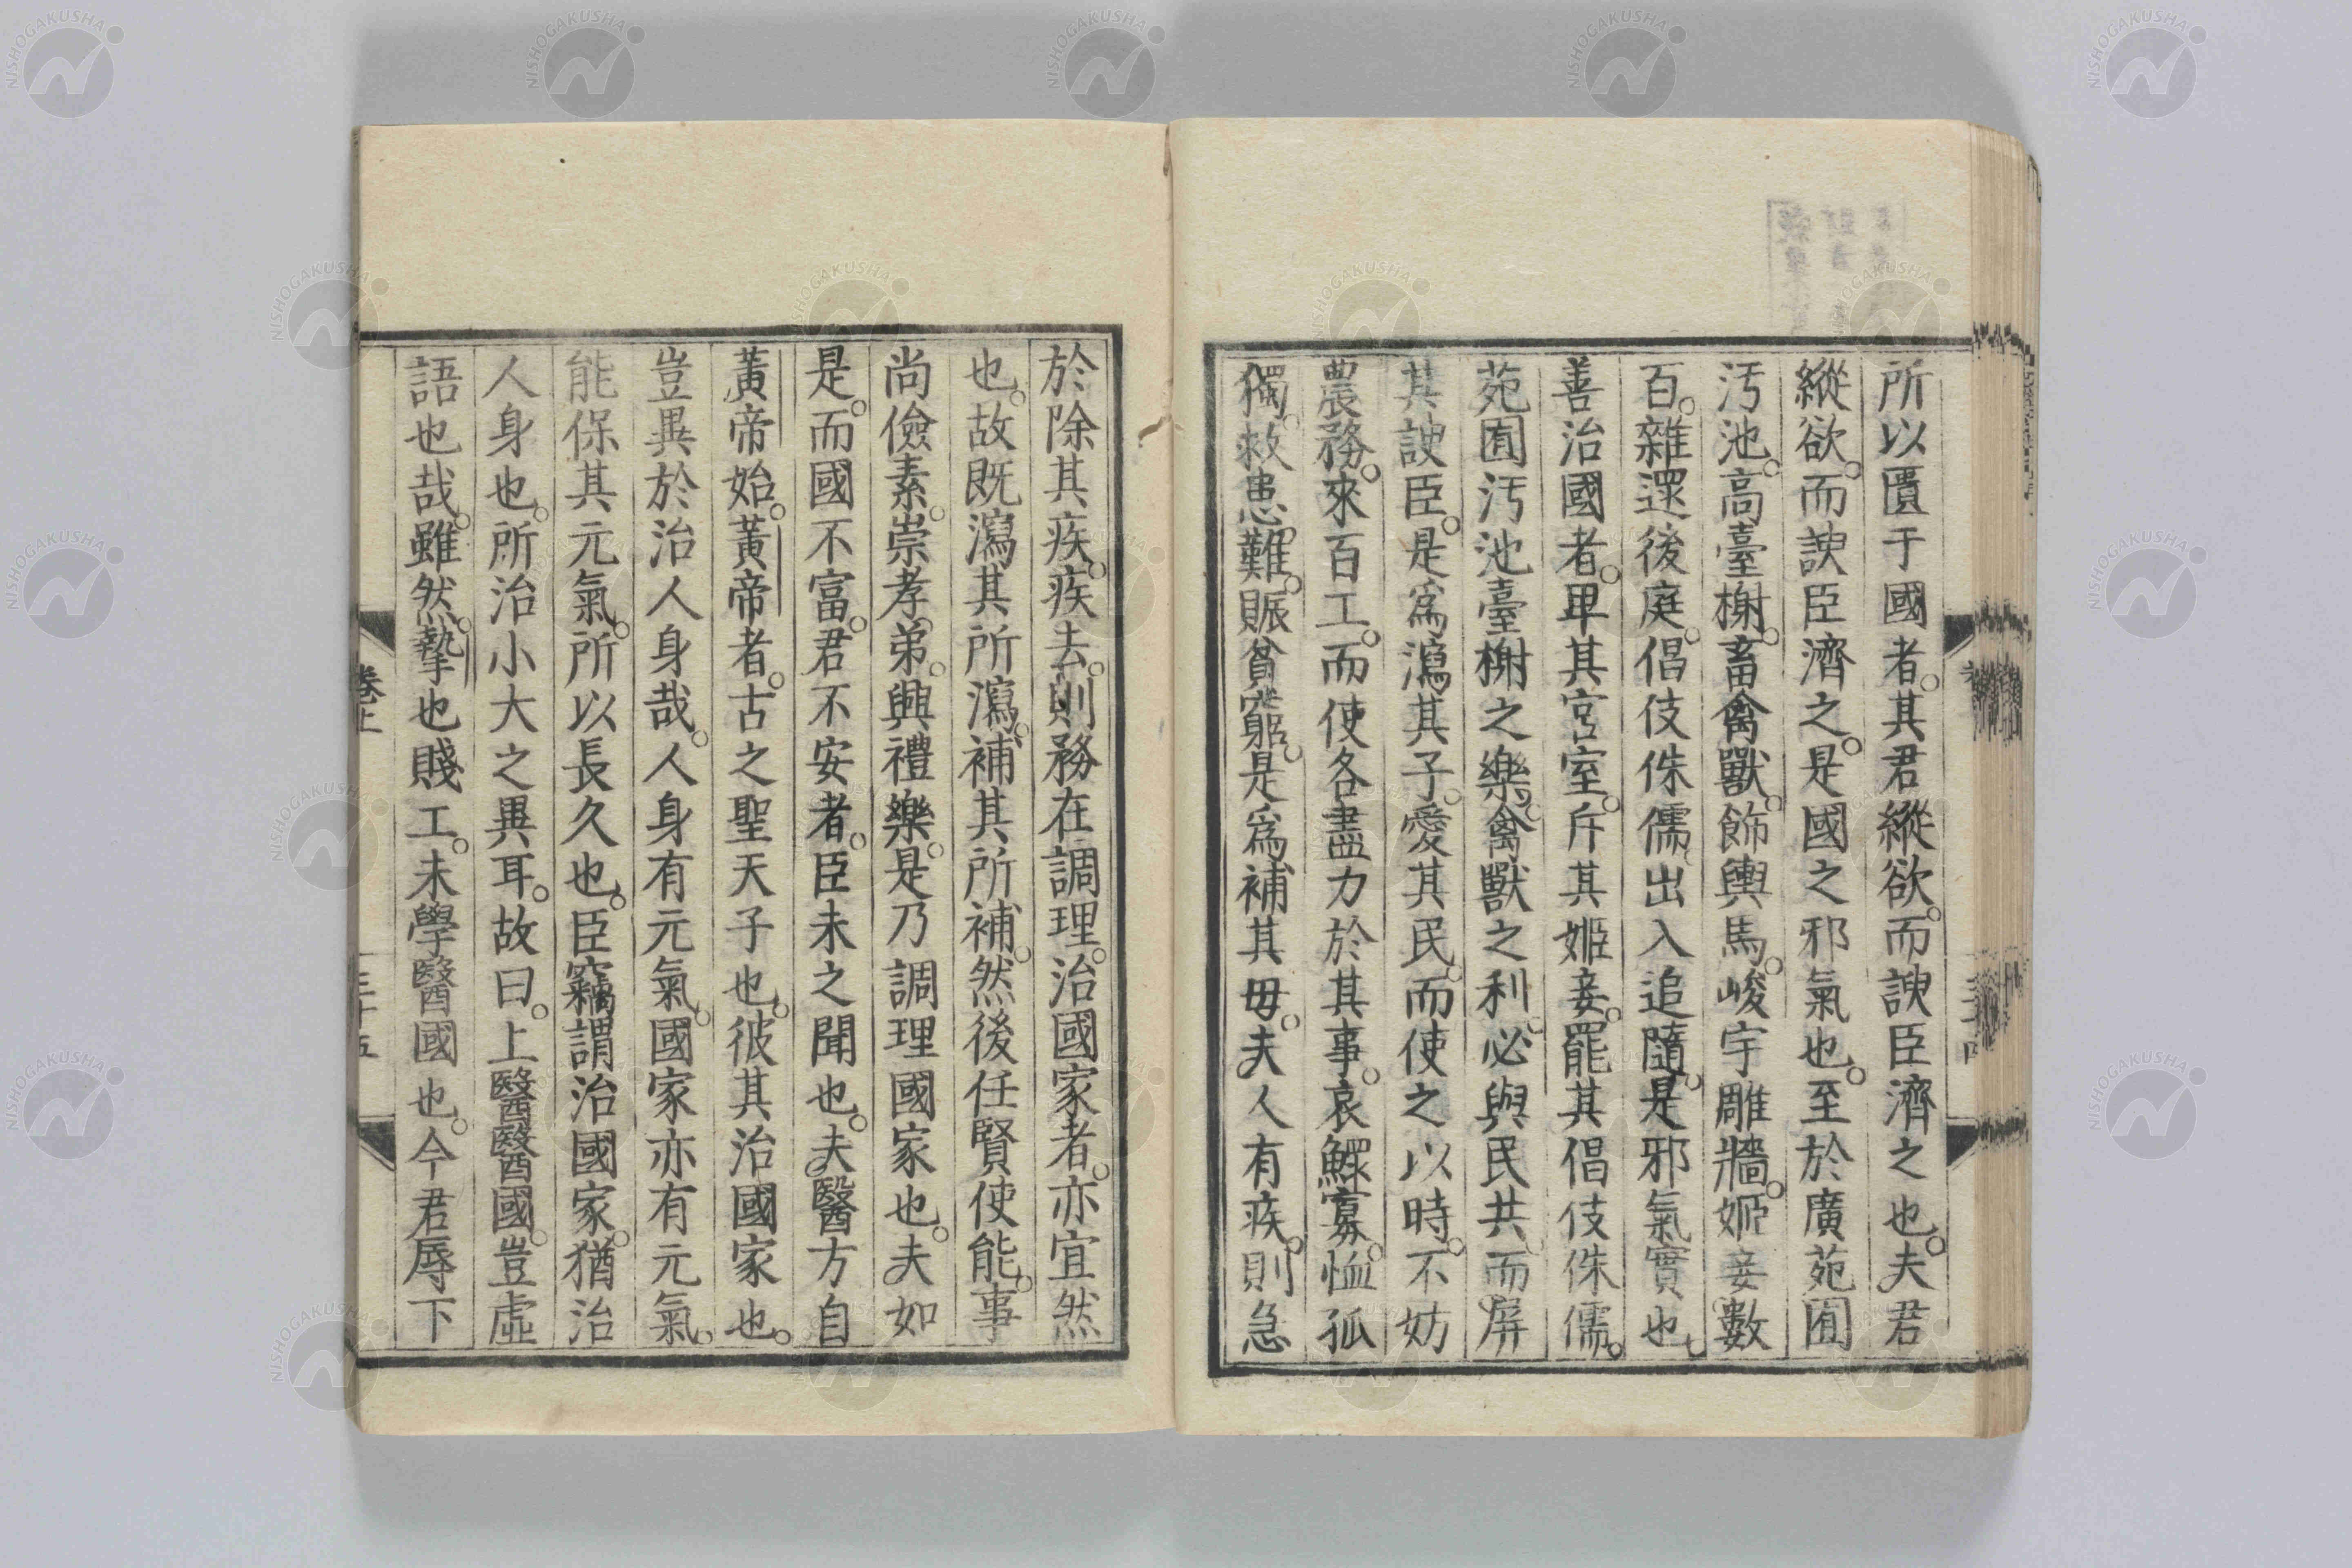 所以匱于國者。其君縱欲。而諛臣濟之也。夫君
縱欲。而諛臣濟之。是國之邪氣也。至於廣苑囿
汚池。高臺榭。畜禽獸。飾輿馬。峻宇雕牆。姬妾數
百。雜還後庭。倡伎侏儒出入追隨。是邪氣實也。
善治國者。卑其宮室。斥其姬妾。罷其倡伎侏儒。
苑囿汚池臺榭之樂。禽獸之利。必與民共。而屏
其諛臣。是爲瀉其子。愛其民。而使之以時。不妨
農務。來百工。而使各盡力於其事。哀鰥寡。恤孤
獨。救患難。賑貧窮。是爲補其母。夫人有疾。則急
於除其疾。疾去。則務在調理。治國家者。亦宜然
也。故既瀉其所瀉。補其所補。然後任賢使能。事
尚儉素。崇孝弟。興禮樂。是乃調理國家也。夫如
是。而國不富。君不安者。臣未之聞也。夫醫方自
黃帝始。黃帝者。古之聖天子也。彼其治國家也。
豈異於治人身哉。人身有元氣。國家亦有元氣。
能保其元氣。所以長久也。臣竊謂治國家。猶治
人身也。所治小大之異耳。故曰。上醫醫國。豈虛
語也哉。雖然。摯也賤工。未學醫國也。今君辱下
卷上
三十五
NISHOGAKUSHA